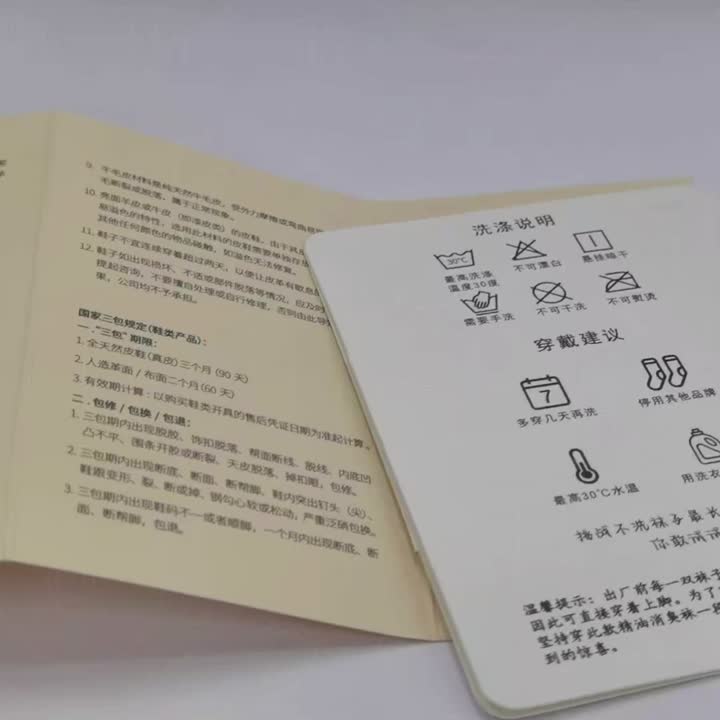 9. 牛毛皮材料是纯天然牛毛皮，受外力摩擦或弯曲
毛断裂或脱落，属于正常现象。
10. 亮面羊皮或牛皮（即漆皮类）的皮鞋，由于其
易溢色的特性，选用此材料的皮鞋需要单独存放
其他任何颜色的物品碰触，如溢色无法修复。
11. 鞋子不宜连续穿着超过两天，以便让皮革有歇息
12. 鞋子如出现损坏、不适或部件脱落等情况，应及时
提起咨询，不要擅自处理或自行修理，否则由此导
果，公司均不予承担。
国家三包规定(鞋类产品)：
一."三包"期限：
1. 全天然皮鞋(真皮)三个月(90 天)
2. 人造革面/布面二个月(60 天)
3. 有效期计算：以购买鞋类开具的售后凭证日期为准起计算。
二.包修/包换/包退：
1. 三包期内出现脱胶、饰扣脱落、帮面断线、脱线、内底凹
凸不平、围条开胶或断裂、天皮脱落、掉扣眼，包修。
2. 三包期内出现断底、断面、断帮脚、鞋内突出钉头（尖）、
鞋跟变形、裂、断或掉、钢勾心软或松动，严重泛硝包换。
3. 三包期内出现鞋码不一或者顺脚，一个月内出现断底、断
面、断帮脚，包退。
洗涤说明
30℃
最高洗涤
温度30度
不可漂白
悬挂晾干
需要手洗
不可干洗
不可熨烫
穿戴建议
7
多穿几天再洗
停用其他品牌
最高30℃水温
用洗衣
挑战不洗袜子最长
你敢
温馨提示：出厂前每一双袜子
因此可直接穿着上脚。为了
坚持穿此款精油消臭袜一段
到的惊喜。